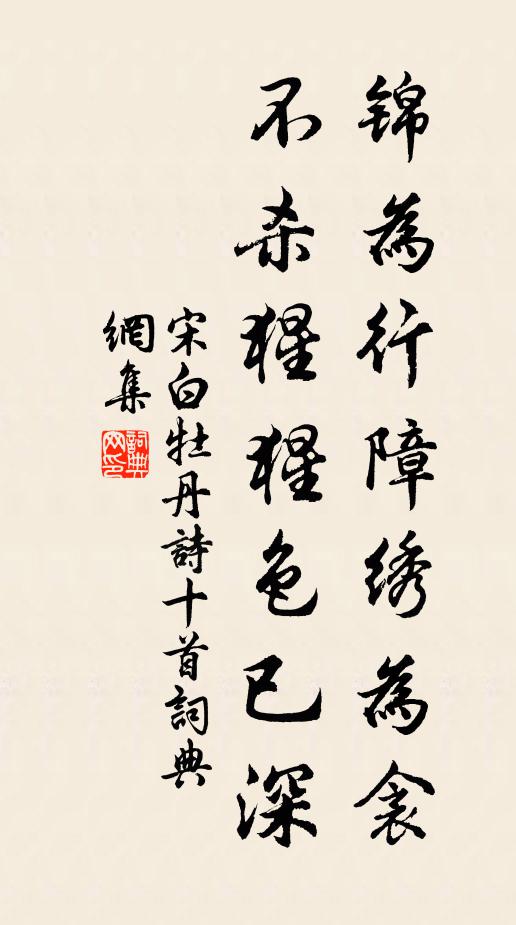 锦為行障绣為衾
不杀猩猩色已深
宋白牡丹詩十首詞典
網集
詞典
网印